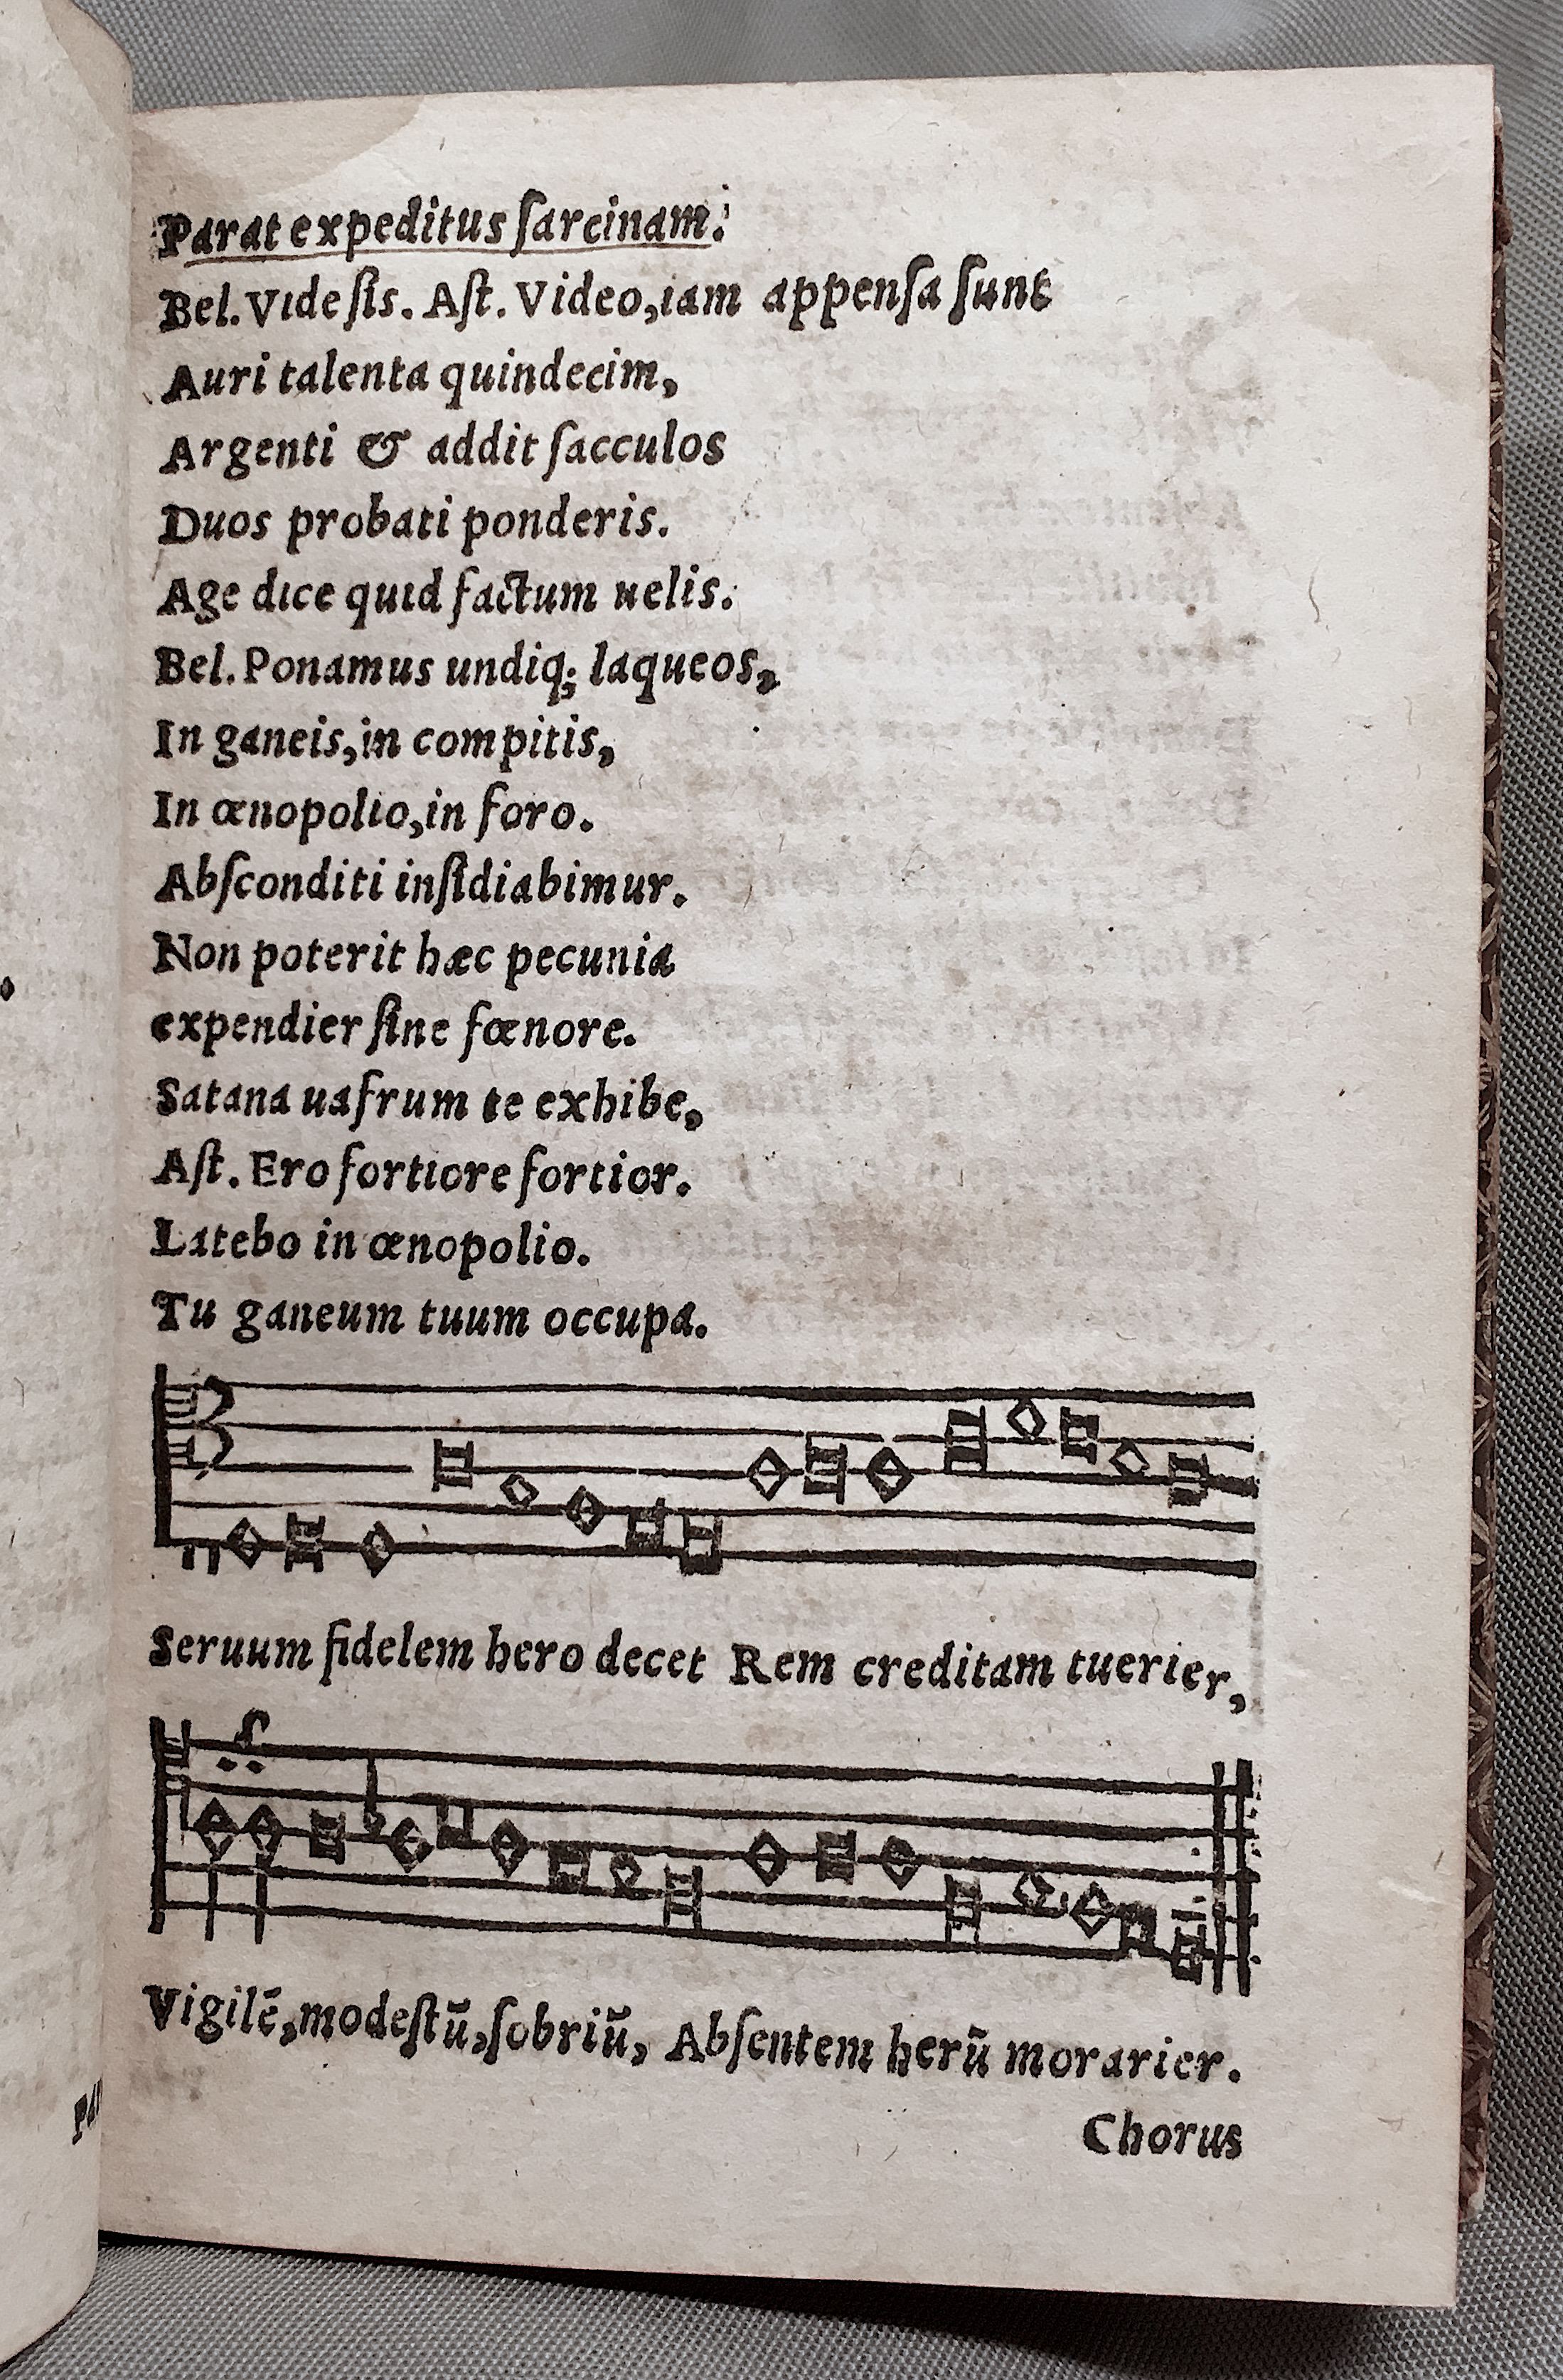 Parat expeditus ſarcinam.
Bel. Vide ſis. Aſt. Video, iam appenſa ſunt
Auri talenta quindecim,
Argenti & addit ſacculos
Duos probati ponderis.
Age dice quid factum uelis.
Bel. Ponamus undiq; laqueos,
In ganeis, in compitis,
In œnopolio, in foro.
Abſconditi inſidiabimur.
Non poterit hæc pecunia
expendier ſine fœnore.
Satana uafrum te exhibe,
Aſt. Ero fortiore fortior.
Latebo in œnopolio.
Tu ganeum tuum occupa.
Seruum fidelem hero decet Rem creditam tuerier,
Vigilẽ, modeſtũ, ſobriũ, Abſentem herũ morarier.
Chorus